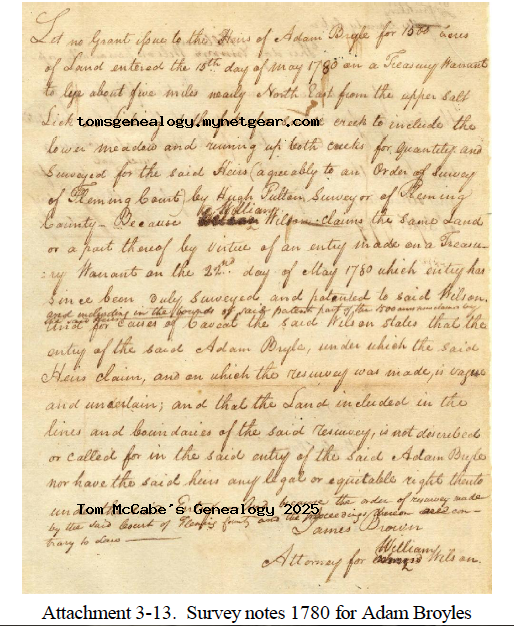 Let no Grant issue to the Heirs of Adam Bryle for 1500 acres
of Land entered the 15th day of May 1780 on a Treasury Warrant
to lye about five miles nearly North East from the upper salt
Lick on creek to include the
tomsgenealogy.mynetgear.com
lower meadow and running up both creeks for quantity and
Surveyed for the said Heirs (agreeably to an Order of Survey
of Fleming Court) by Hugh Fulton, Surveyor of Fleming
County - Because William Wilson claims the same Land
or a part thereof by virtue of an entry made on a Treasu-
ry Warrant on the 22nd day of May 1780 which entry has
since been duly surveyed, and patented to said Wilson.
and including in the bounds of said patent part of the 1500 acres claimed by
the said Heirs
And for causes of Caveat the said Wilson states that the
entry of the said Adam Bryle, under which the said
Heirs claim, and on which the resurvey was made, is vague
and uncertain; and that the Land included in the
lines and boundaries of the said resurvey, is not described
or called for in the said entry of the said Adam Bryle
nor have the said heirs any legal or equitable right thereto
under the And because the order of resurvey made
Tom McCabe's Genealogy 2025
by the said Court of Fleming and the proceedings thereon are con-
trary to Law
James Brown
Attorney for William Wilson.
Attachment 3-13. Survey notes 1780 for Adam Broyles